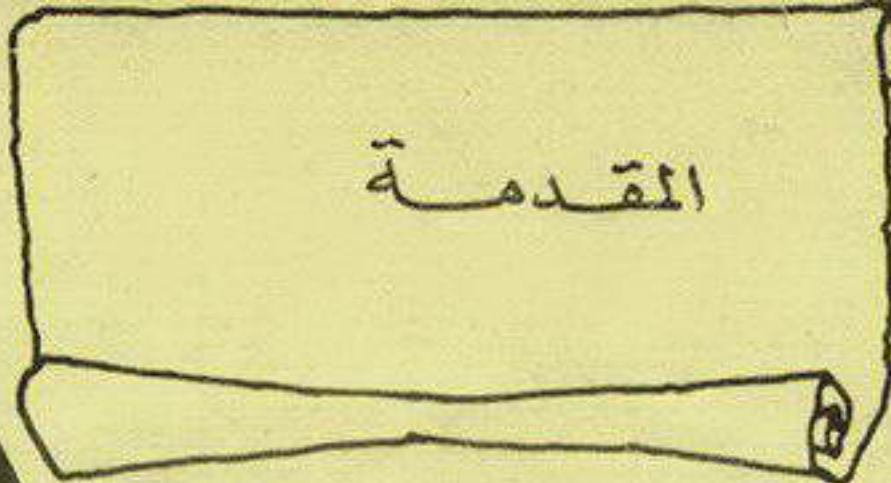 المقدمة